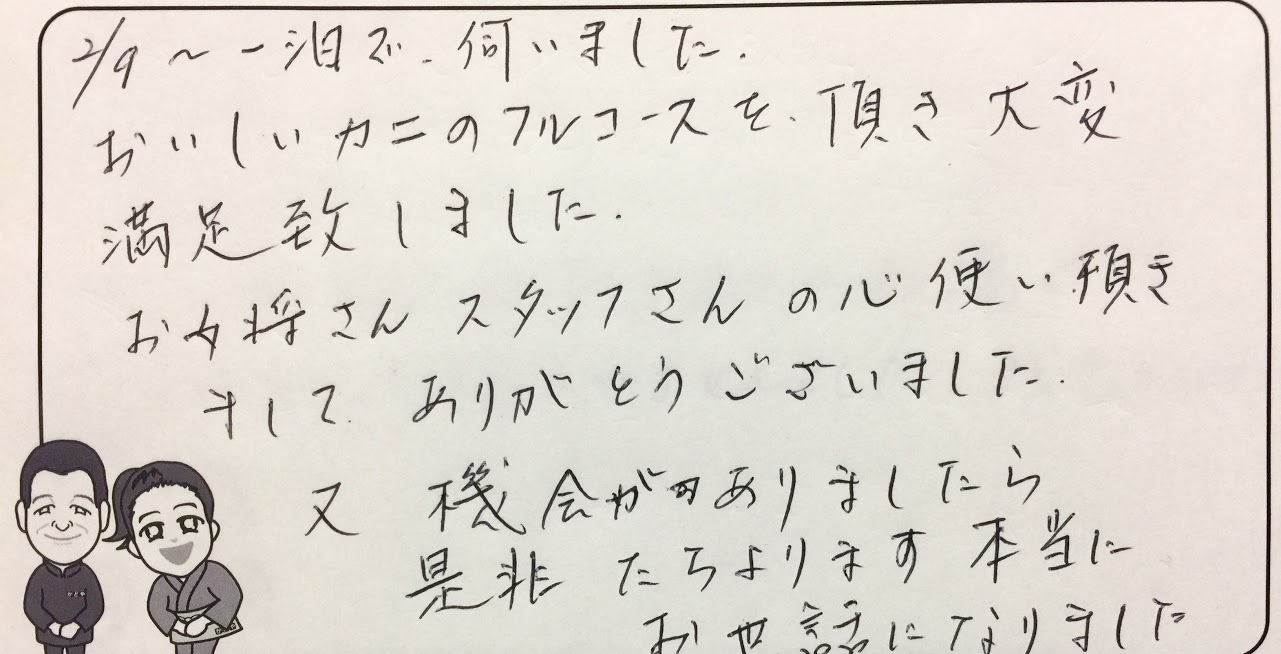 2/9～一泊で、伺いました.
おいしいカニのフルコースを、頂き大変
満足致しました.
お女将さんスタッフさんの心使い頂き
まして ありがとうございました.
又 機会がありましたら
是非たちよります本当に
お世話になりました